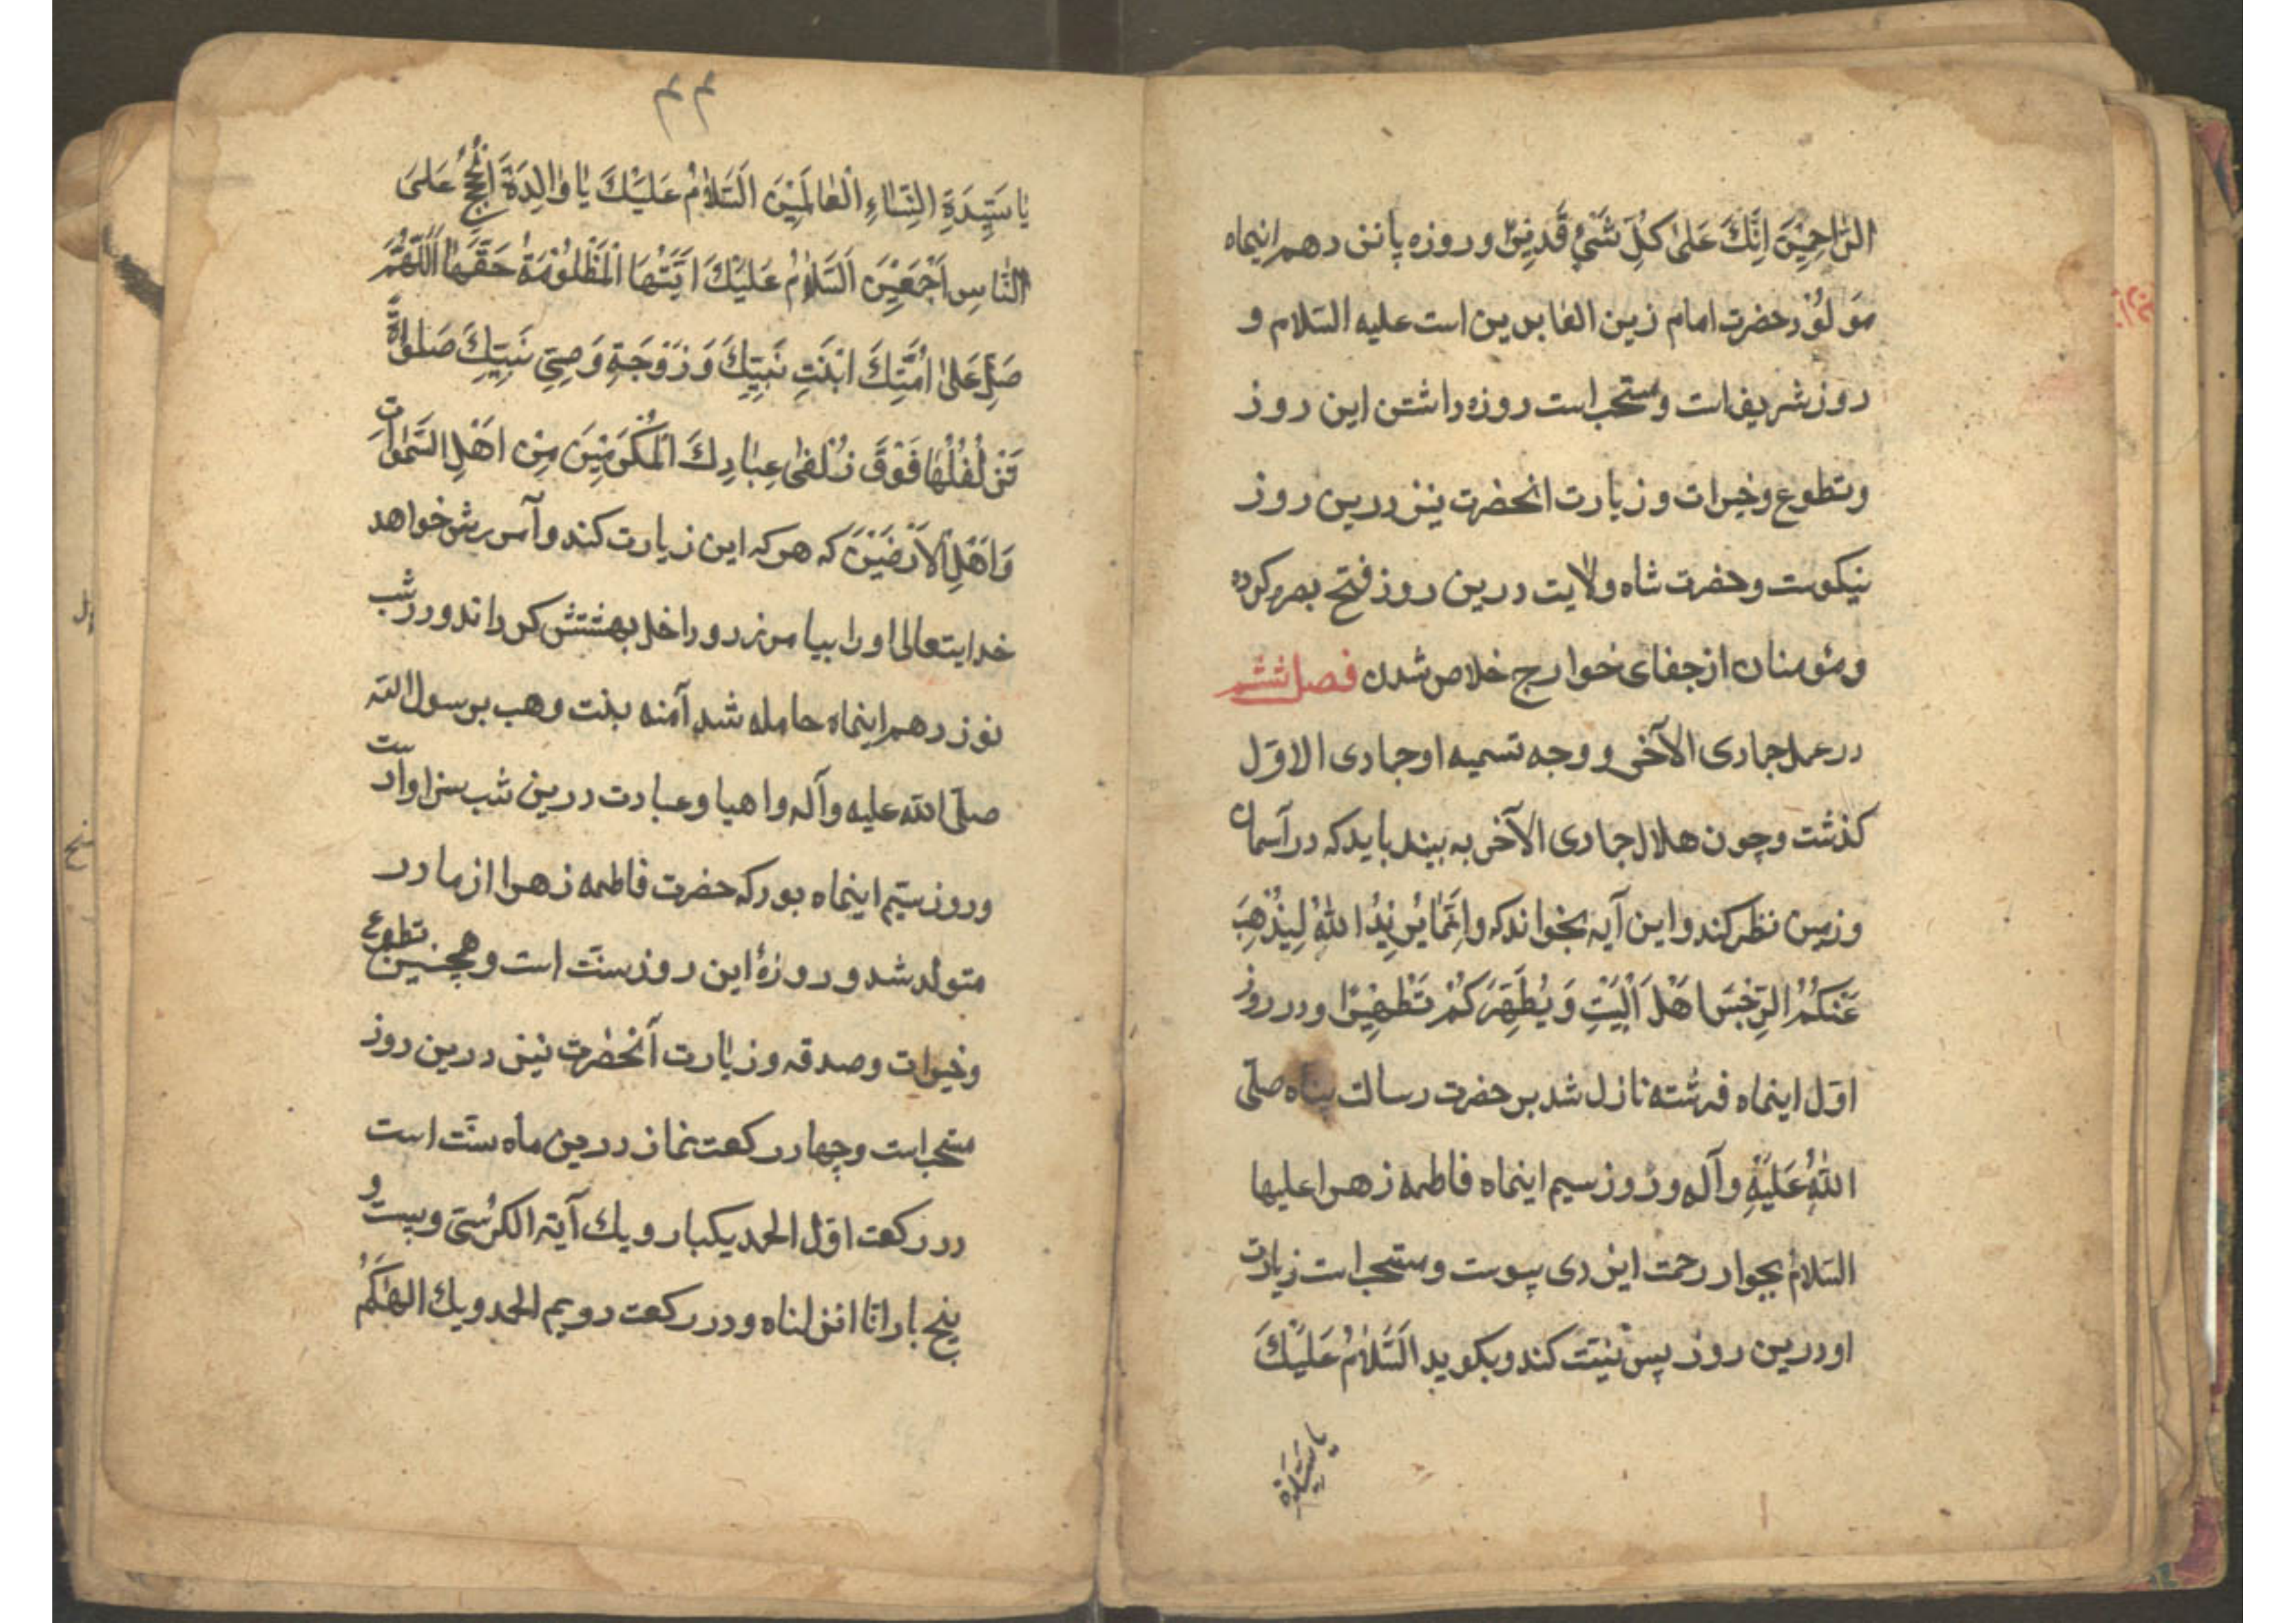 الرّاحِمِیْنَ اِنَّكَ عَلیٰ كُلِّ شَیْءٍ قَدِیْرٌ و روزه پانزدهم اینماه
مَولُوْد حضرت امام زین العابدین است علیه السّلام و
روز شریف است و مستحب است روزه داشتن این روز
و تطوع و خیرات و زیارت انحضرت نیز درین روز
نیکوست و حضرت شاه ولایت درین روز فتح بصره کرده
و مئومنان از جفای خوارج خلاص شدن فصل ششم
در عمل جمادی الآخر و وجه تسمیه او جمادی الاوّل
کذشت و چون هلال جمادی الآخر به بیند باید که در آسمان
و زمین نظر کند و این آیه بخواند که و اِنَّمٰا یُرِیْدُ اللّٰهُ لِیُذْهِبَ
عَنْکُمُ الرِّجْسَ اَهْلَ الْبَیْتِ وَ یُطَهِّرَکُمْ تَطْهِیْرًا و در روز
اوّل اینماه فرشته نازل شد بر حضرت رسالت پناه صلّی
اللّٰهُ عَلَیْهِ وَ آلِهِ و رُوز سیم اینماه فاطمه زهرا علیها
السّلام بجوار رحمت ایزدی پیوست و مستحب است زیارت
او درین روز پس نیّت کند و بکوید اَلسَّلامُ عَلَیْكَ
یا سَیِّدَةَ
۴۴
یٰا سَیِّدَةِ النِّسٰاءِ الْعٰالَمِیْنَ اَلسَّلاٰمُ عَلَیْكَ یٰا وٰالِدَةَ الْحُجَجِ عَلیَ
النّٰاسِ اَجْمَعِیْنَ اَلسَّلاٰمُ عَلَیْكَ اَیَّتُهَا الْمَظْلُوْمَةُ حَقَّهٰا اَللّٰهُمَّ
صَلِّ عَلیٰ اُمَّتِكَ ابْنَتِ نَبِیِّكَ وَ زَوْجَةِ وَصِیِّ نَبِیِّكَ صَلوٰةً
تَزْلُفُلُهٰا فَوْقَ زُلْفیٰ عِبٰادِكَ الْمُکَرَّمِیْنَ مِنْ اَهْلِ السَّمٰوٰاتِ
وَ اَهْلِ الْاَرَضِیْنَ که هر که این زیارت کند و آمرزش خواهد
خدایتعالی او را بیامرزد و داخل بهشتش کرداند و در شب
نوزدهم اینماه حامله شد آمنه بنت وهب برسول اللّه
صلّی اللّه علیه و آله و احیا و عبادت درین شب سزاوارست
و روز سیّم اینماه بود که حضرت فاطمه زهرا از مادر
متولد شد و روزهٔ این روز سنّت است و همچنین تطوع
و خیرات و صدقه و زیارت آنحضرت نیز درین روز
مستحب است و چهار رکعت نماز درین ماه سنّت است
در رکعت اوّل الحمد یکبار و یك آیة الکرسی و بیست و
پنج بار انّا انزلناه و در رکعت دویم الحمد و یك الهٰکُمُ